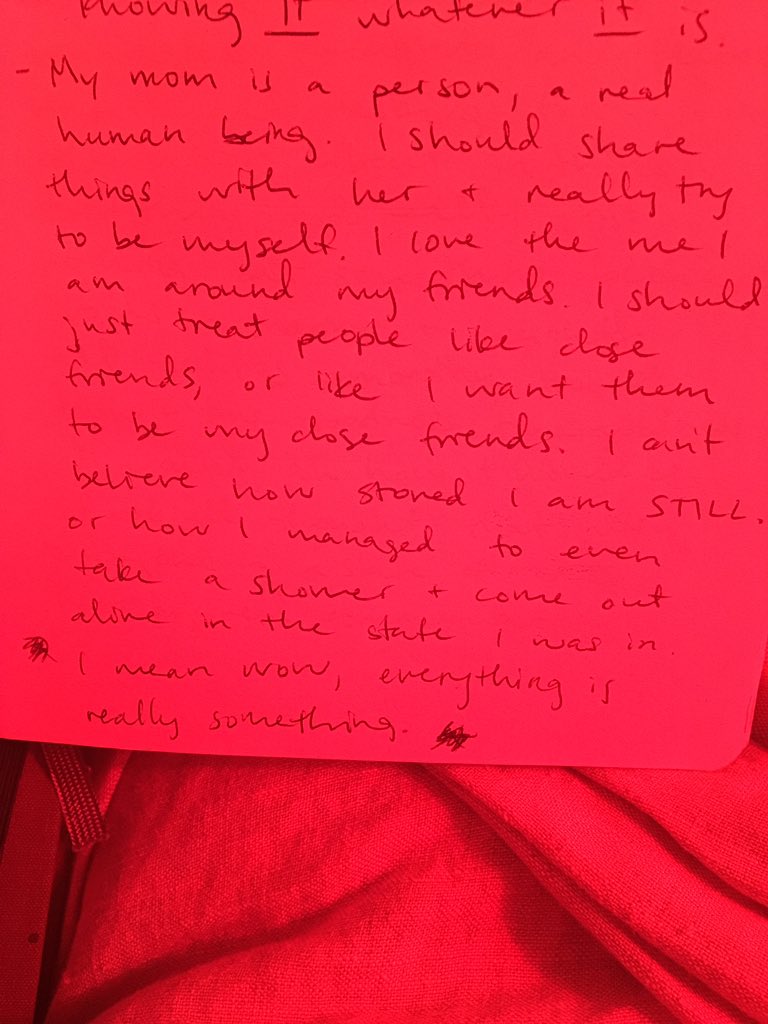 knowing IT whatever it is.
- My mom is a person, a real
human being. I should share
things with her + really try
to be myself. I love the me I
am around my friends. I should
just treat people like close
friends, or like I want them
to be my close friends. I can't
believe how stoned I am STILL.
or how I managed to even
take a shower + come out
alive in the state I was in.
I mean wow, everything is
really something.